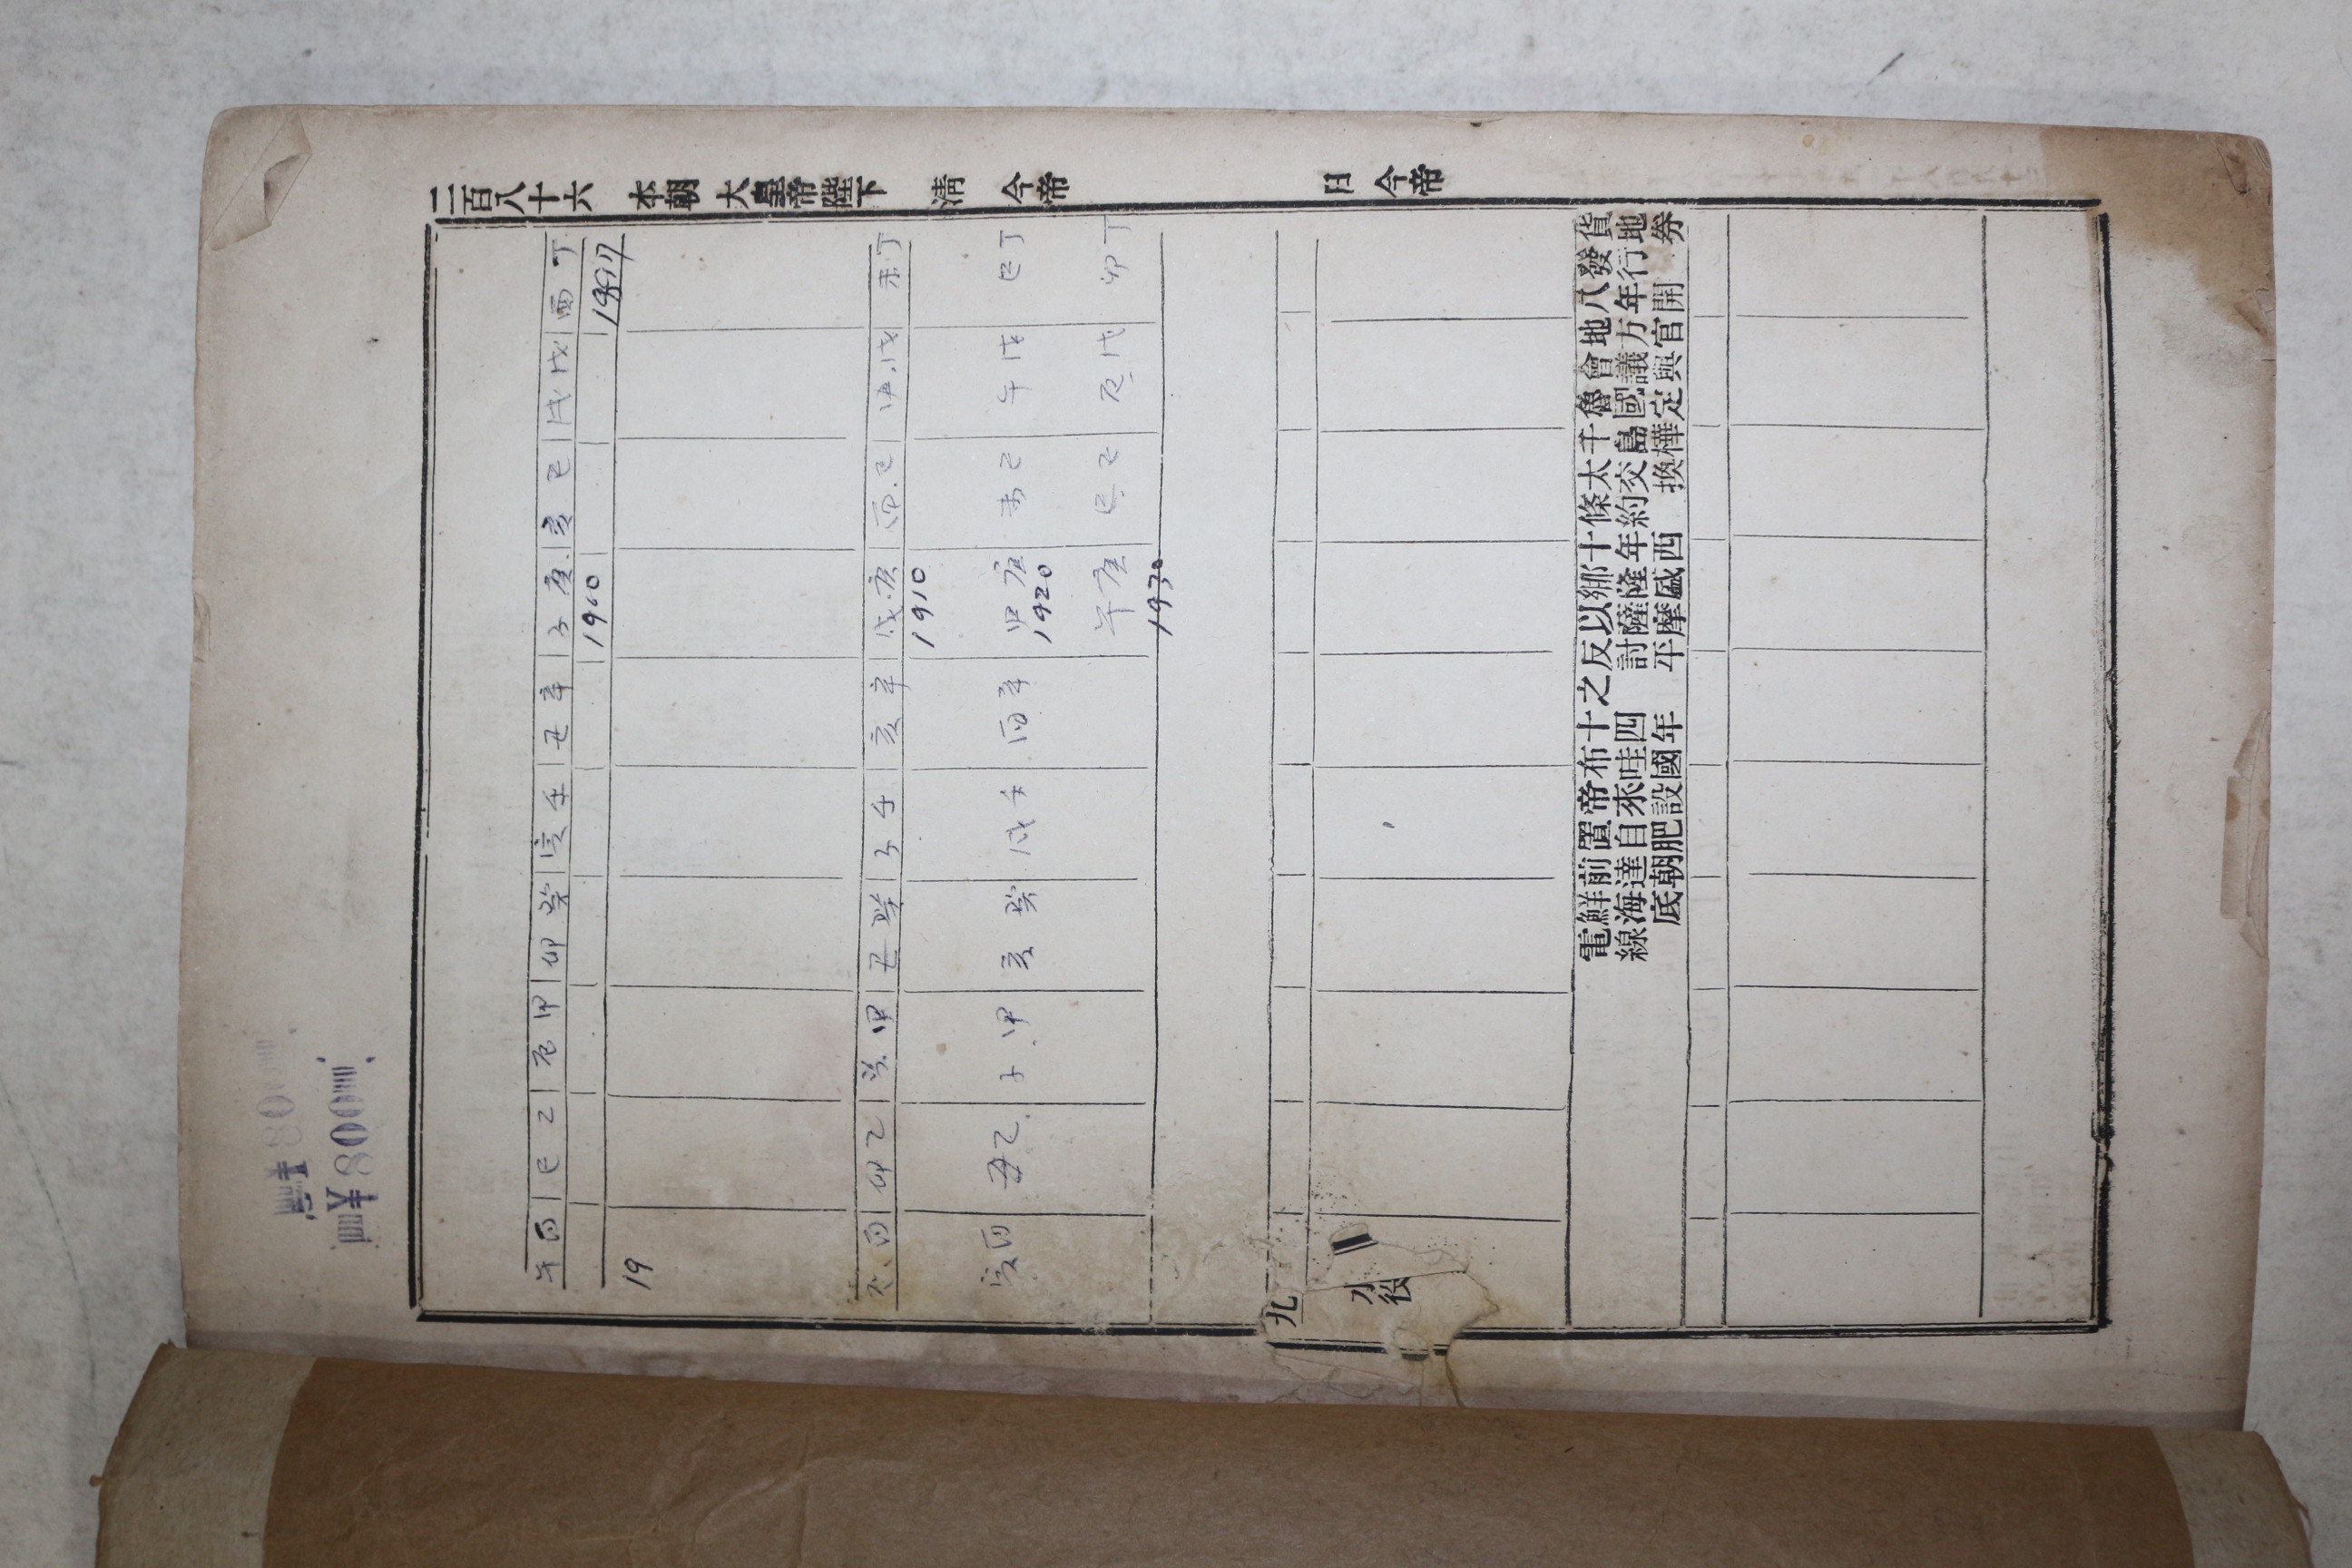 ¥80
¥800
二百八十六
本朝
大皇帝陛下
清
今帝
日
今帝
丁酉 戊戌 己亥 庚子 辛丑 壬寅 癸卯 甲辰 乙巳 丙午
1897
1900
19
丁未 戊申 己酉 庚戌 辛亥 壬子 癸丑 甲寅 乙卯 丙辰
1910
丁巳 戊午 己未 庚申 辛酉 壬戌 癸亥 甲子 乙丑 丙寅
1920
丁卯 戊辰 己巳 庚午
1930
九
後
貨地券
發行開
八年
地方官
會議與
魯國定
千島樺
太交換
條約
十年西
鄉隆盛
以薩摩
反討平
之
十四年
布哇國
帝來設
置自肥
前達朝
鮮海底
電線